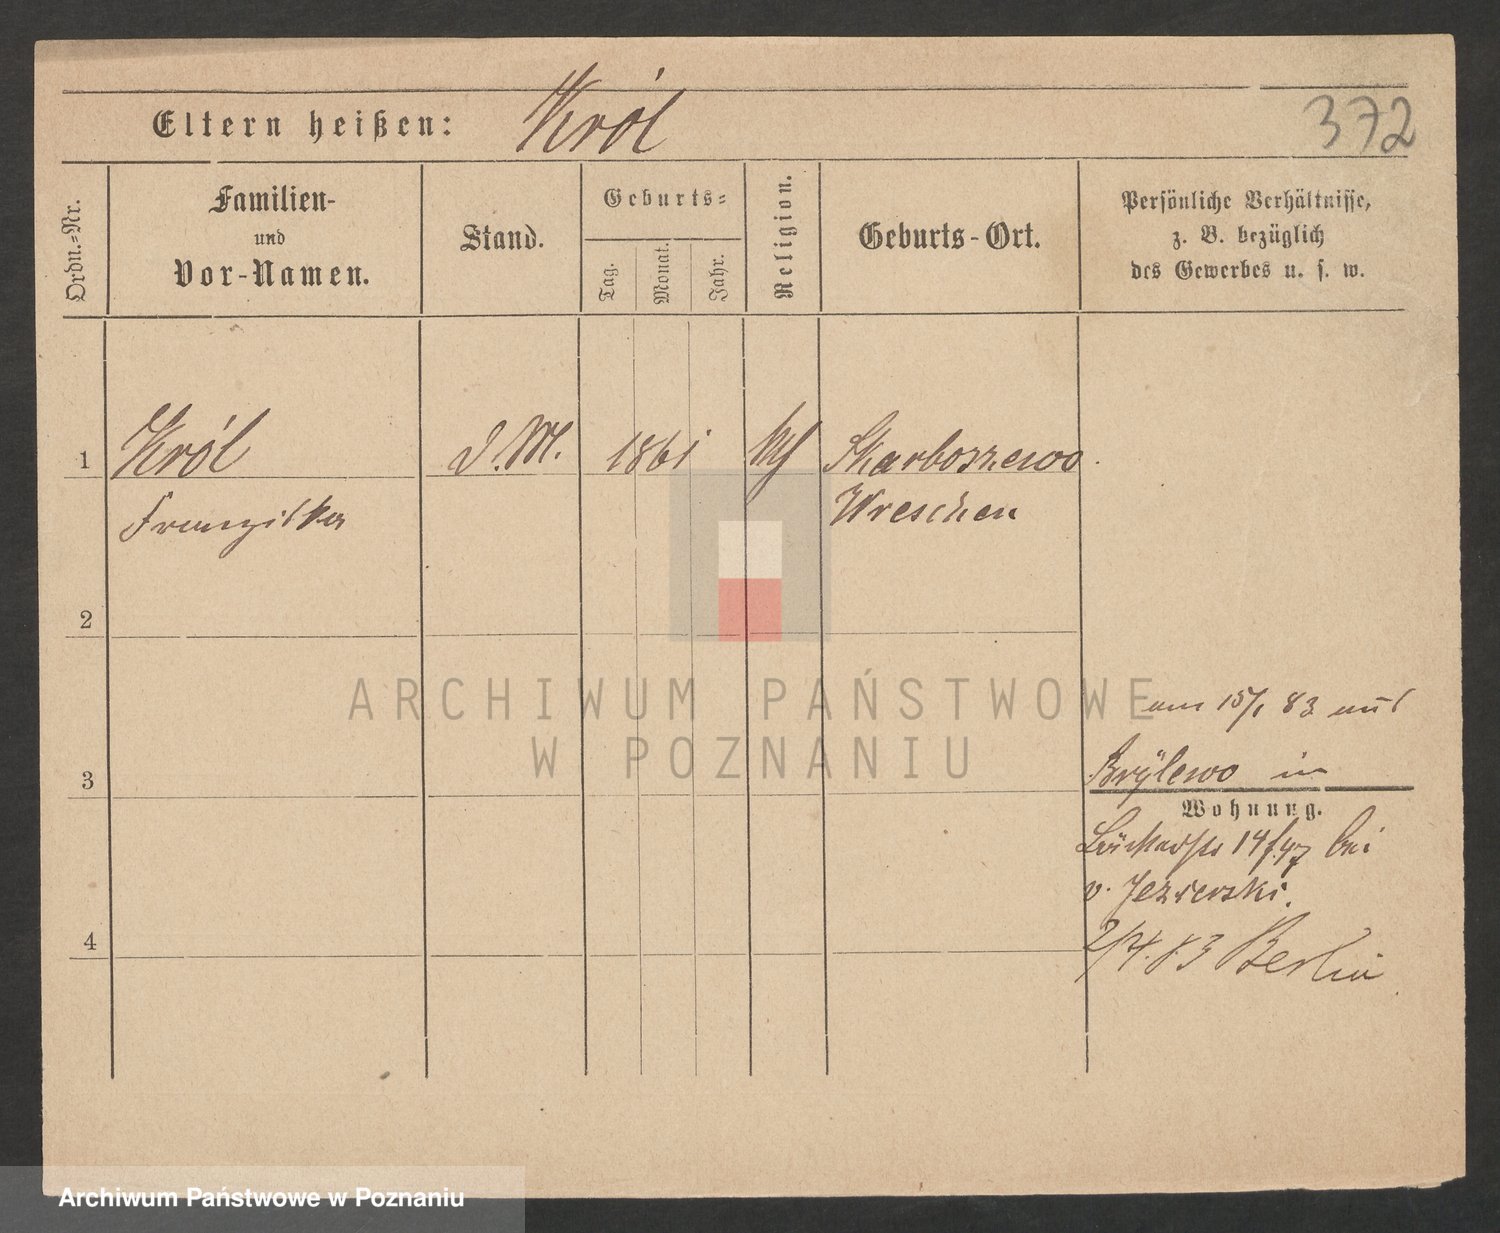 Eltern heißen: Król
372
Ordn.-Nr.
Familien-
und
Vor-Namen.
Stand.
Geburts-
Tag.
Monat.
Jahr.
Religion.
Geburts-Ort.
Persönliche Verhältnisse,
z. B. bezüglich
des Gewerbes u. s. w.
1
Król
D. M.
1861
kth
Skarboszewo
Franziska
Wreschen
2
ARCHIWUM PAŃSTWOWE
W POZNANIU
am 15/1 83 aus
3
Brÿlewo in
Wohnung.
14/47 bei
v. Jezierski.
4
2/4. 83 Berlin
Archiwum Państwowe w Poznaniu